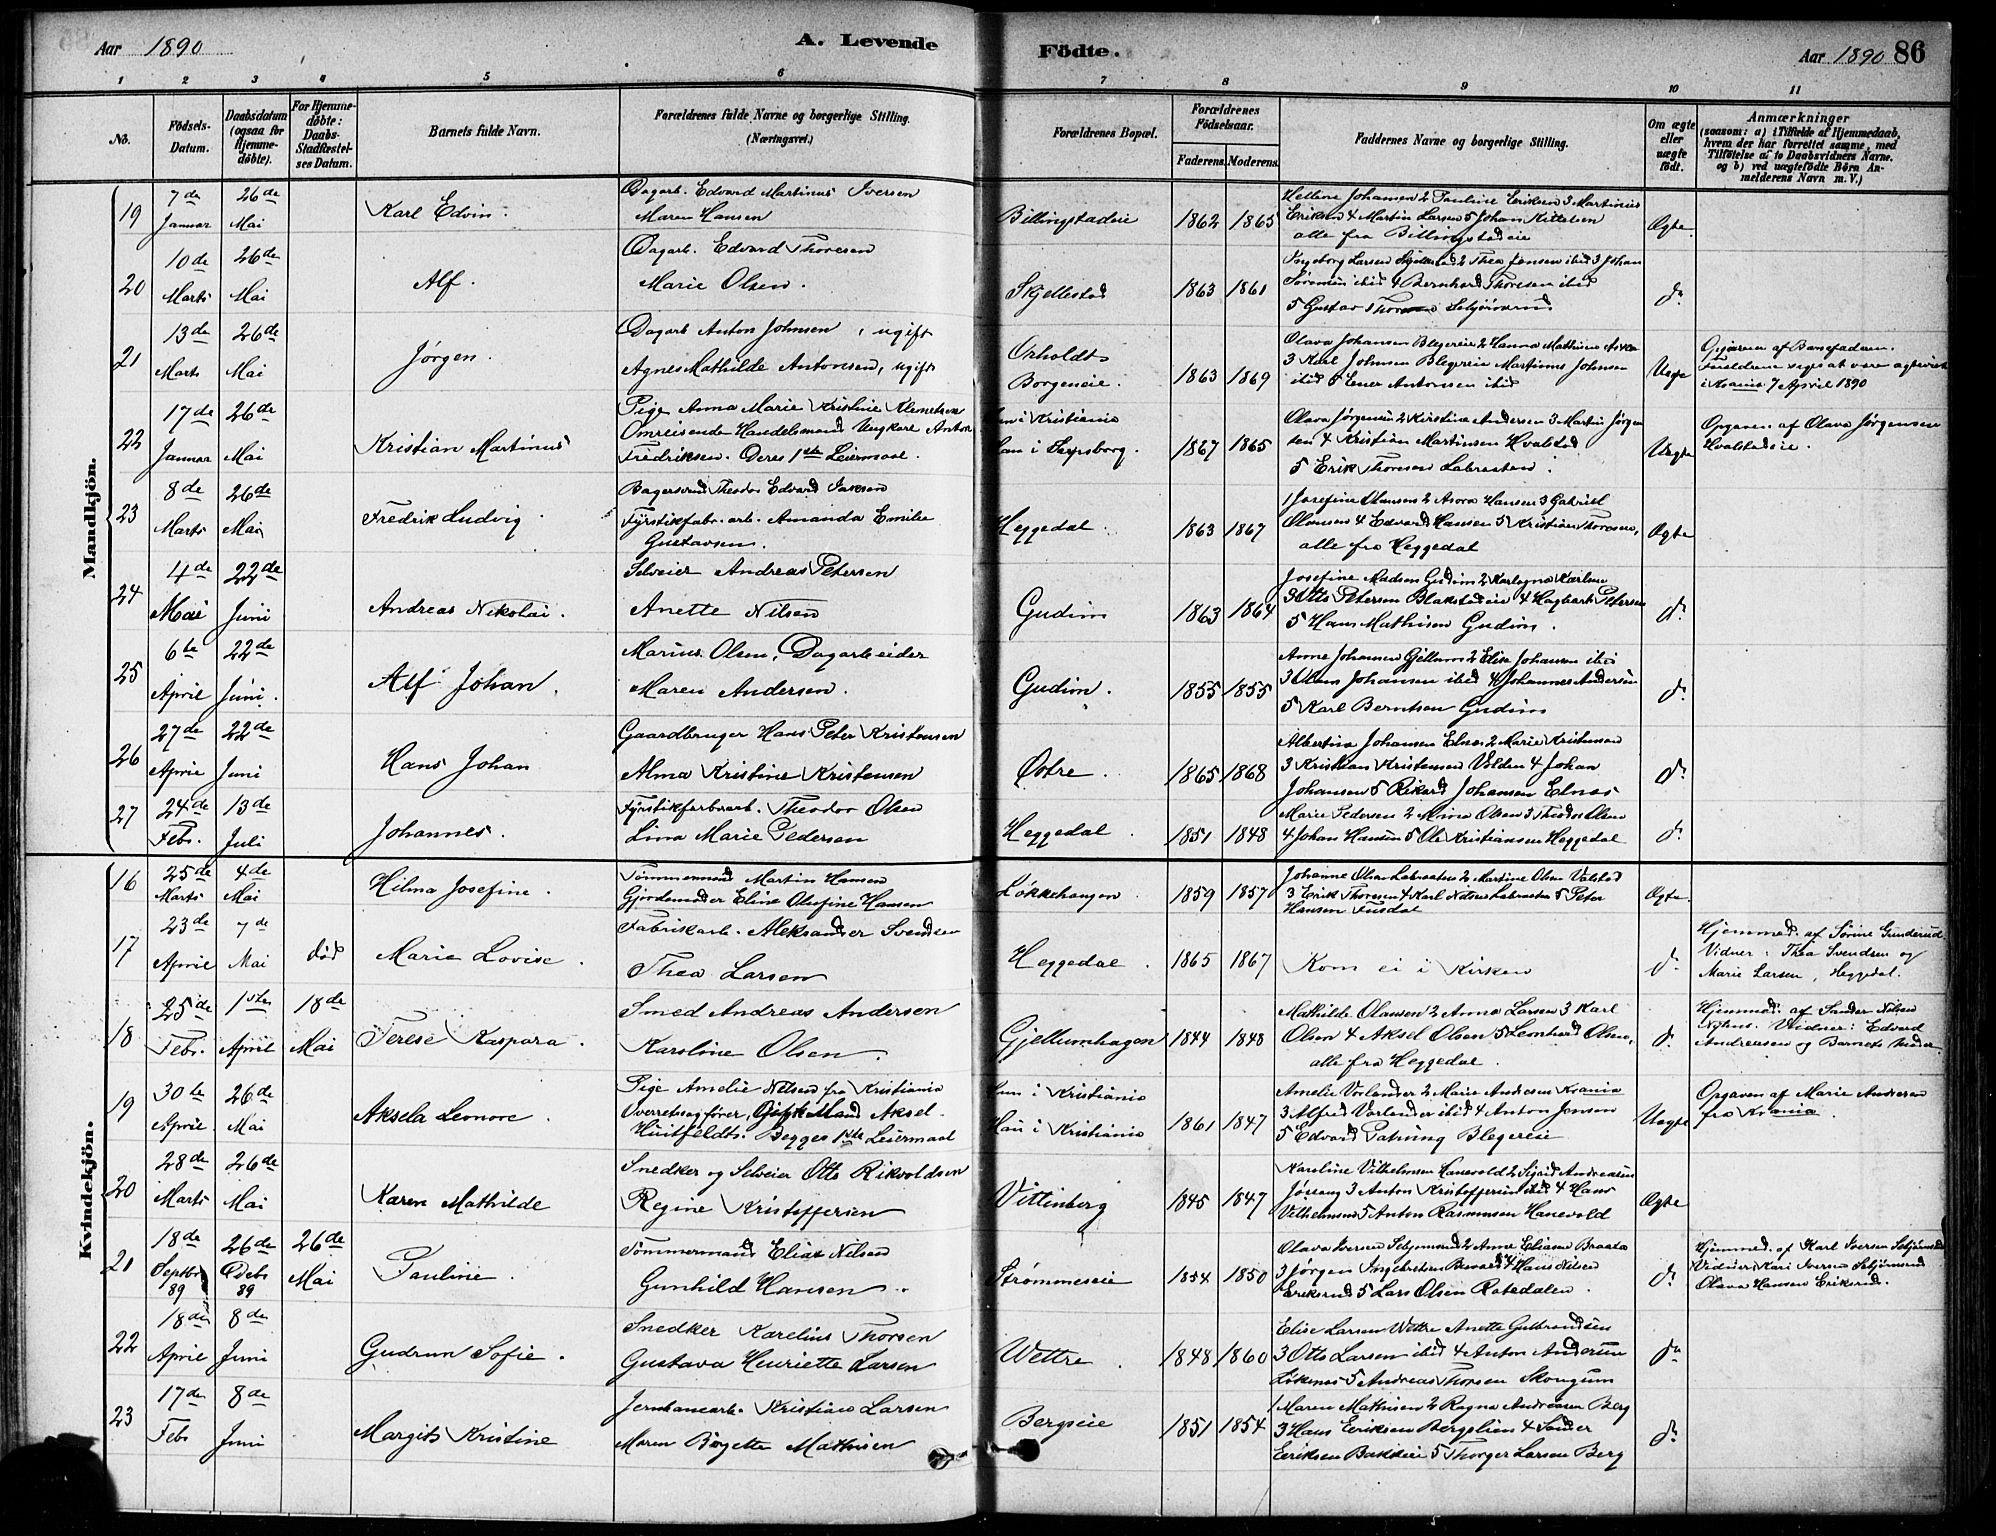 Aar 1890 A. Levende Fødte. Aar 1890 86
1 2 3 4 5 6 7 8 9 10 11
No.
Födsels-Datum.
Daabsdatum (ogsaa for Hjemme-døbte).
For Hjemme-døbte: Daabs-Stadfæstel-ses Datum.
Barnets fulde Navn.
Forældrenes fulde Navne og borgerlige Stilling.
(Næringsvei.)
Forældrenes Bopæl.
Forældrenes Fødselsaar.
Faderens. Moderens.
Faddernes Navne og borgerlige Stilling.
Om ægte eller uægte født.
Anmærkninger
(saasom: a) i Tilfælde af Hjemmedaab,
hvem der har forrettet samme, med
Tilføielse af to Daabsvidners Navne.
og b) ved uægtefødte Børn An-
melderens Navn m. V.)
Mandkjön.
19 7de Januar 26de Mai Karl Edvin.
Dagarb. Edvard Martinus Iversen
Maren Hansen
Billingstadeie 1862 1865
Hellene Johansen 2 Pauline Eriksen 3 Martinius
Eriksen 4 Martin Larsen 5 Johan Kittelsen
alle fra Billingstadeie
Ægte.
20 10de Marts 26de Mai Alf.
Dagarb. Edvard Thoresen
Marie Olsen.
Skjellestad 1863 1861
Ingeborg Larsen Skjellestad 2 Thea Jensen ibid 3 Johan
Sørensen ibid 4 Bernhard Thoresen ibid
5 Gustav
do
21 13de Marts 26de Mai Jørgen.
Dagarb Anton Johnsen, ugift
Agnes Mathilde Antonsen, ugift
Borgeneie. 1863 1869
Olava Johansen Blegereie 2 Hanna Mathisen
3 Karl Johnsen Blegereie Martinus Johnsen
ibid 5 Ener Antonsen ibid
Uægte
Opgaven af Barnefaderen.
Forældrene siges at være
i Krania 7 April 1890
22 17de Januar 26de Mai Kristian Martinus
Pige Anna Marie Kristine Klemetsen
Omreisende Handelsmand Ungkarl Anton
Fredriksen. Deres 1ste Leiermaal.
Hun i Kristiania
Han i Sarpsborg. 1867 1865
Olava Jørgensen 2 Kirstine Andersen 3 Martin Jørgen
sen 4 Kristian Martinsen Hvalstad
5 Erik Thoresen Labraaten.
Uægte
Opgaven af Olava Jørgensen
Hvalstadeie.
23 8de Marts 26de Mai Fredrik Ludvig.
Bagersvend Theodor Edvard Isaksen
Fyrstikfabr. arb. Amanda Emilie
Gustavsen.
Heggedal. 1863 1867
1 Josefine Olausen 2 Hansen 3 Gabriel
Olausen 4 Edvard Hansen 5 Kristian Thoresen,
alle fra Heggedal
Ægte
24 4de Mai 22de Juni Andreas Nikolai.
Selveier Andreas Petersen
Anette Nilsen
Gudim 1863 1864
Josefine Madsen Gudim 2 Karlsen
3 Otto Petersen Blakstadeie 4 Hagbart Petersen
5 Hans Mathisen Gudim.
do
25 6te April 22de Juni. Alf Johan.
Marius Olsen, Dagarbeider
Maren Andersen.
Gudim. 1855 1855
Anne Johansen Gjellum 2 Elise Johansen ibid
3 Olaus Johansen ibid 4 Johannes Andersen
5 Karl Berntsen Gudim
do
26 27de April 22de Juni Hans Johan
Gaardbruger Hans Peter Kristensen
Alma Kristine Kristensen
Østre. 1865 1868
Albertine Johansen Elnæs 2 Marie Kristensen
3 Kristian Kristensen Volden 4 Johan
Johansen 5 Rikard Johansen Elnæs
do
27 24de Febr. 13de Juli Johannes.
Fyrstikfarbrarb. Theodor Olsen
Lina Marie Pedersen
Heggedal. 1851 1848
Marie Pedersen 2 Mina Olsen 3 Theodor Olsen
4 Johan Hansen 5 Ole Kristiansen Heggedal
do
Kvindekjön.
16 25de Marts 4de Mai Hilma Josefine.
Tømmermand Martin Hansen
Gjordemoder Eline Olufine Hansen
Løkkehangen 1859 1857
Johanne Olsen Labraaten 2 Martine Olsen Valstad
3 Erik Thoresen 4 Karl Nilsen Labraaten 5 Peter
Hansen Fusdal
Ægte.
17 23de April 7de Mai død Marie Lovise.
Fabrikarb. Aleksander Svendsen
Thea Larsen
Heggedal. 1865 1867
Kom ei i Kirken
do
Hjemmed. af Sørine Gunderud
Vidner: Thea Svendsen og
Marie Larsen, Heggedal.
18 25de Febr. 1ste April 18de Mai Terese Kaspara.
Smed Andreas Andersen
Karoline Olsen.
Gjellumhagen 1844 1848
Mathilde Olausen 2 Anna Larsen 3 Karl
Olsen 4 Aksel Olsen 5 Leonhard Olsen,
alle fra Heggedal.
do
Hjemmed. af Sander Nilsen
Nyhus. Vidner: Edvard
Andreasen og Barnets Moder.
19 30te April. 26de Mai Aksela Leonore.
Pige Amelie Nilsen fra Kristiania
Overretssagfører, Gift Mand Aksel
Huitfeldt. Begges 1ste Leiermaal
Hun i Kristiania
Han i Kristiania 1861 1847
Amelie Vorlander 2 Marie Andresen Krania
3 Alfred Vorlander ibid 4 Anton Jonson
5 Edvard Blegereie
Uægte
Opgaven af Marie Andresen
fra Krania.
20 28de Marts 26de Mai Karen Mathilde
Snedker og Selveier Otto Rikvoldsen
Regine Kristoffersen
Vittinberg 1845 1847
Karoline Vilhelmsen Hanevold 2 Sigrid Andreasen
3 Anton Kristoffersen ibid 4 Hans
Vilhelmsen 5 Anton Rasmussen Hanevold
Ægte
21 18de Septbr 89 26de Octbr 89 26de Mai Pauline.
Tømmermand Elias Nilsen
Gunhild Hansen.
Strømmeseie 1854 1850
Olava Iversen 2 Anne Eliasen Braata
3 Jørgen Ingebretsen 4 Hans Nilsen
Eriksrud 5 Lars Olsen Rotedalen.
do
Hjemmed. af Karl Iversen
Vidner: Kari Iversen
Olava Hansen Eriksrud.
22 18de April 8de Juni Gudrun Sofie.
Snedker Karelius Thorsen
Gustava Henriette Larsen
Wettre. 1848 1860
Elise Larsen Wettre Anette Gulbrandsen
3 Otto Larsen ibid 4 Anton Andersen
Løkenes 5 Andreas Thorsen Skougum
do
23 17de Febr 8de Juni Margit Kristine
Jernbanearb. Kristian Larsen
Maren Birgette Mathisen
Bergseie 1851 1854
1 Maren Mathisen 2 Ragna Andreasen Berg
3 Hans Eriksen Bergslien 4 Sander
Eriksen Bakkeie 5 Thorger Larsen Berg
do